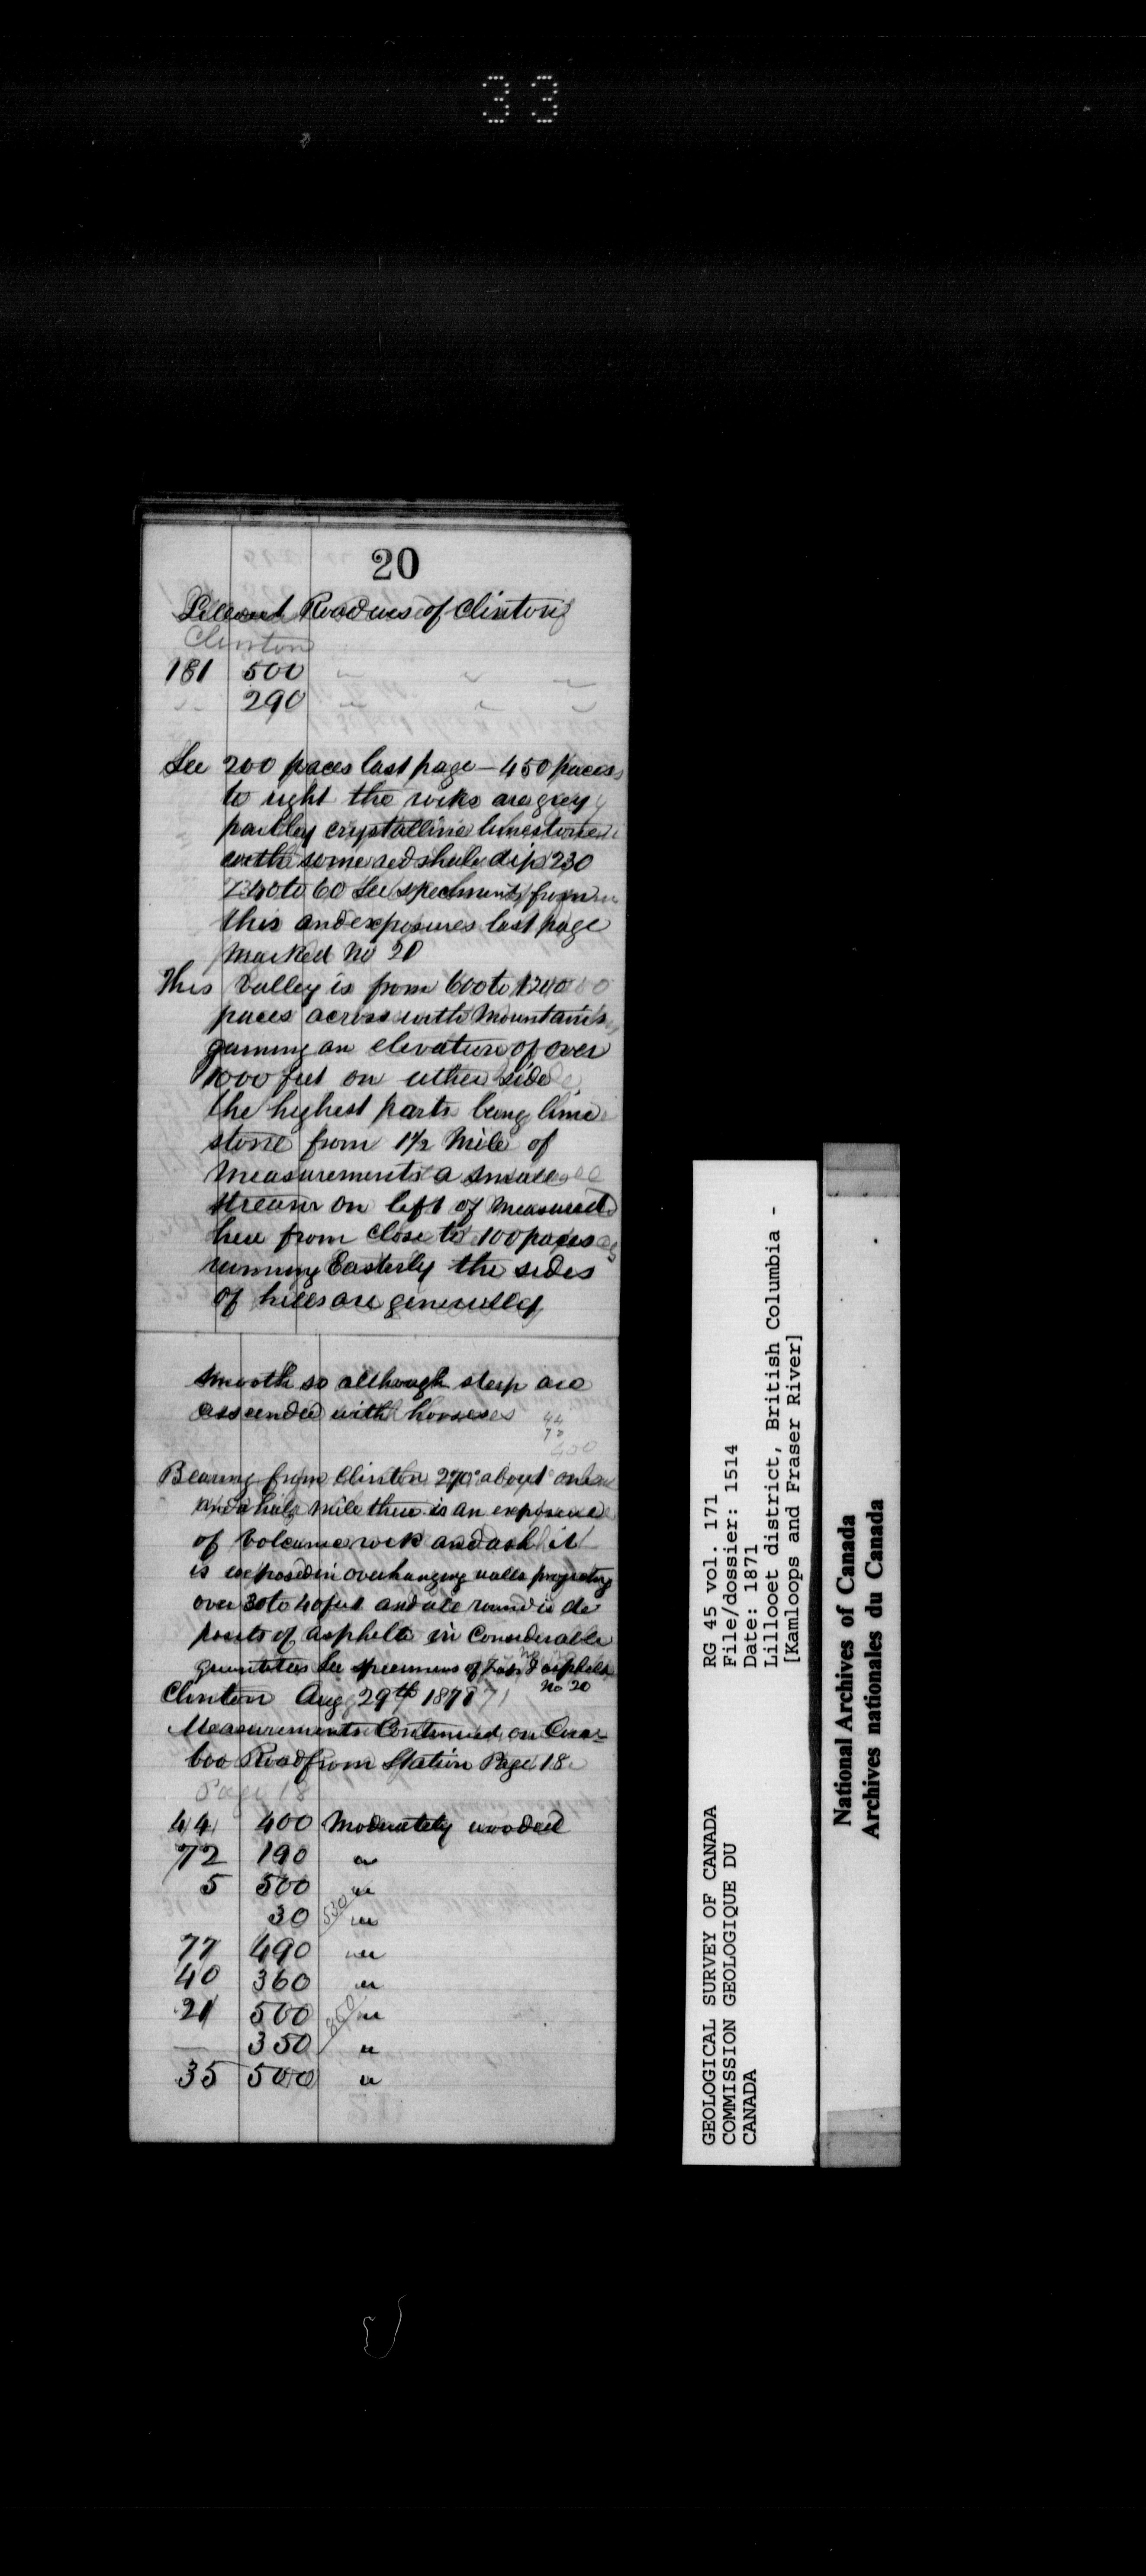 33
20
Lillooet Road wes of Clinton
Clinton
181 500 " " "
" 290 " " "
See 200 paces last page – 450 paces
to right the rocks are grey
partley crystalline limestone
with some red shale dip 230
40 to 60 See specimens from
this and exposures last page
Marked No 20
This Valley is from 600 to 1200
paces across with Mountains
gaining an elevation of over
1000 feet on either side
the highest parts being lime
stone from 1½ Mile of
Measurements a small
stream on left of Measured
here from Close to 100 paces
running Easterly the sides
of hills are generally
smooth so although steep are
assended with horses
44
72
400
Bearing from Clinton 270° about one
and a half mile there is an exposure
of Volcanic rock and ash it
is exposed in overhanging walls projecting
over 30 to 40 feet and all round is de
posits of asphelte in Considerable
quantities See specimens of and asphelte
No 20
Clinton Aug 29th 1871 71
Measurements Continued on Cara-
boo Road from Station Page 18
Page 18
44 400 Moderately wooded
72 190 "
5 500 "
30 530 "
77 490 "
40 360 "
21 500 "
— 350 850 "
35 500 "
GEOLOGICAL SURVEY OF CANADA
COMMISSION GEOLOGIQUE DU
CANADA
RG 45 vol. 171
File/dossier: 1514
Date: 1871
Lillooet district, British Columbia -
[Kamloops and Fraser River]
National Archives of Canada
Archives nationales du Canada